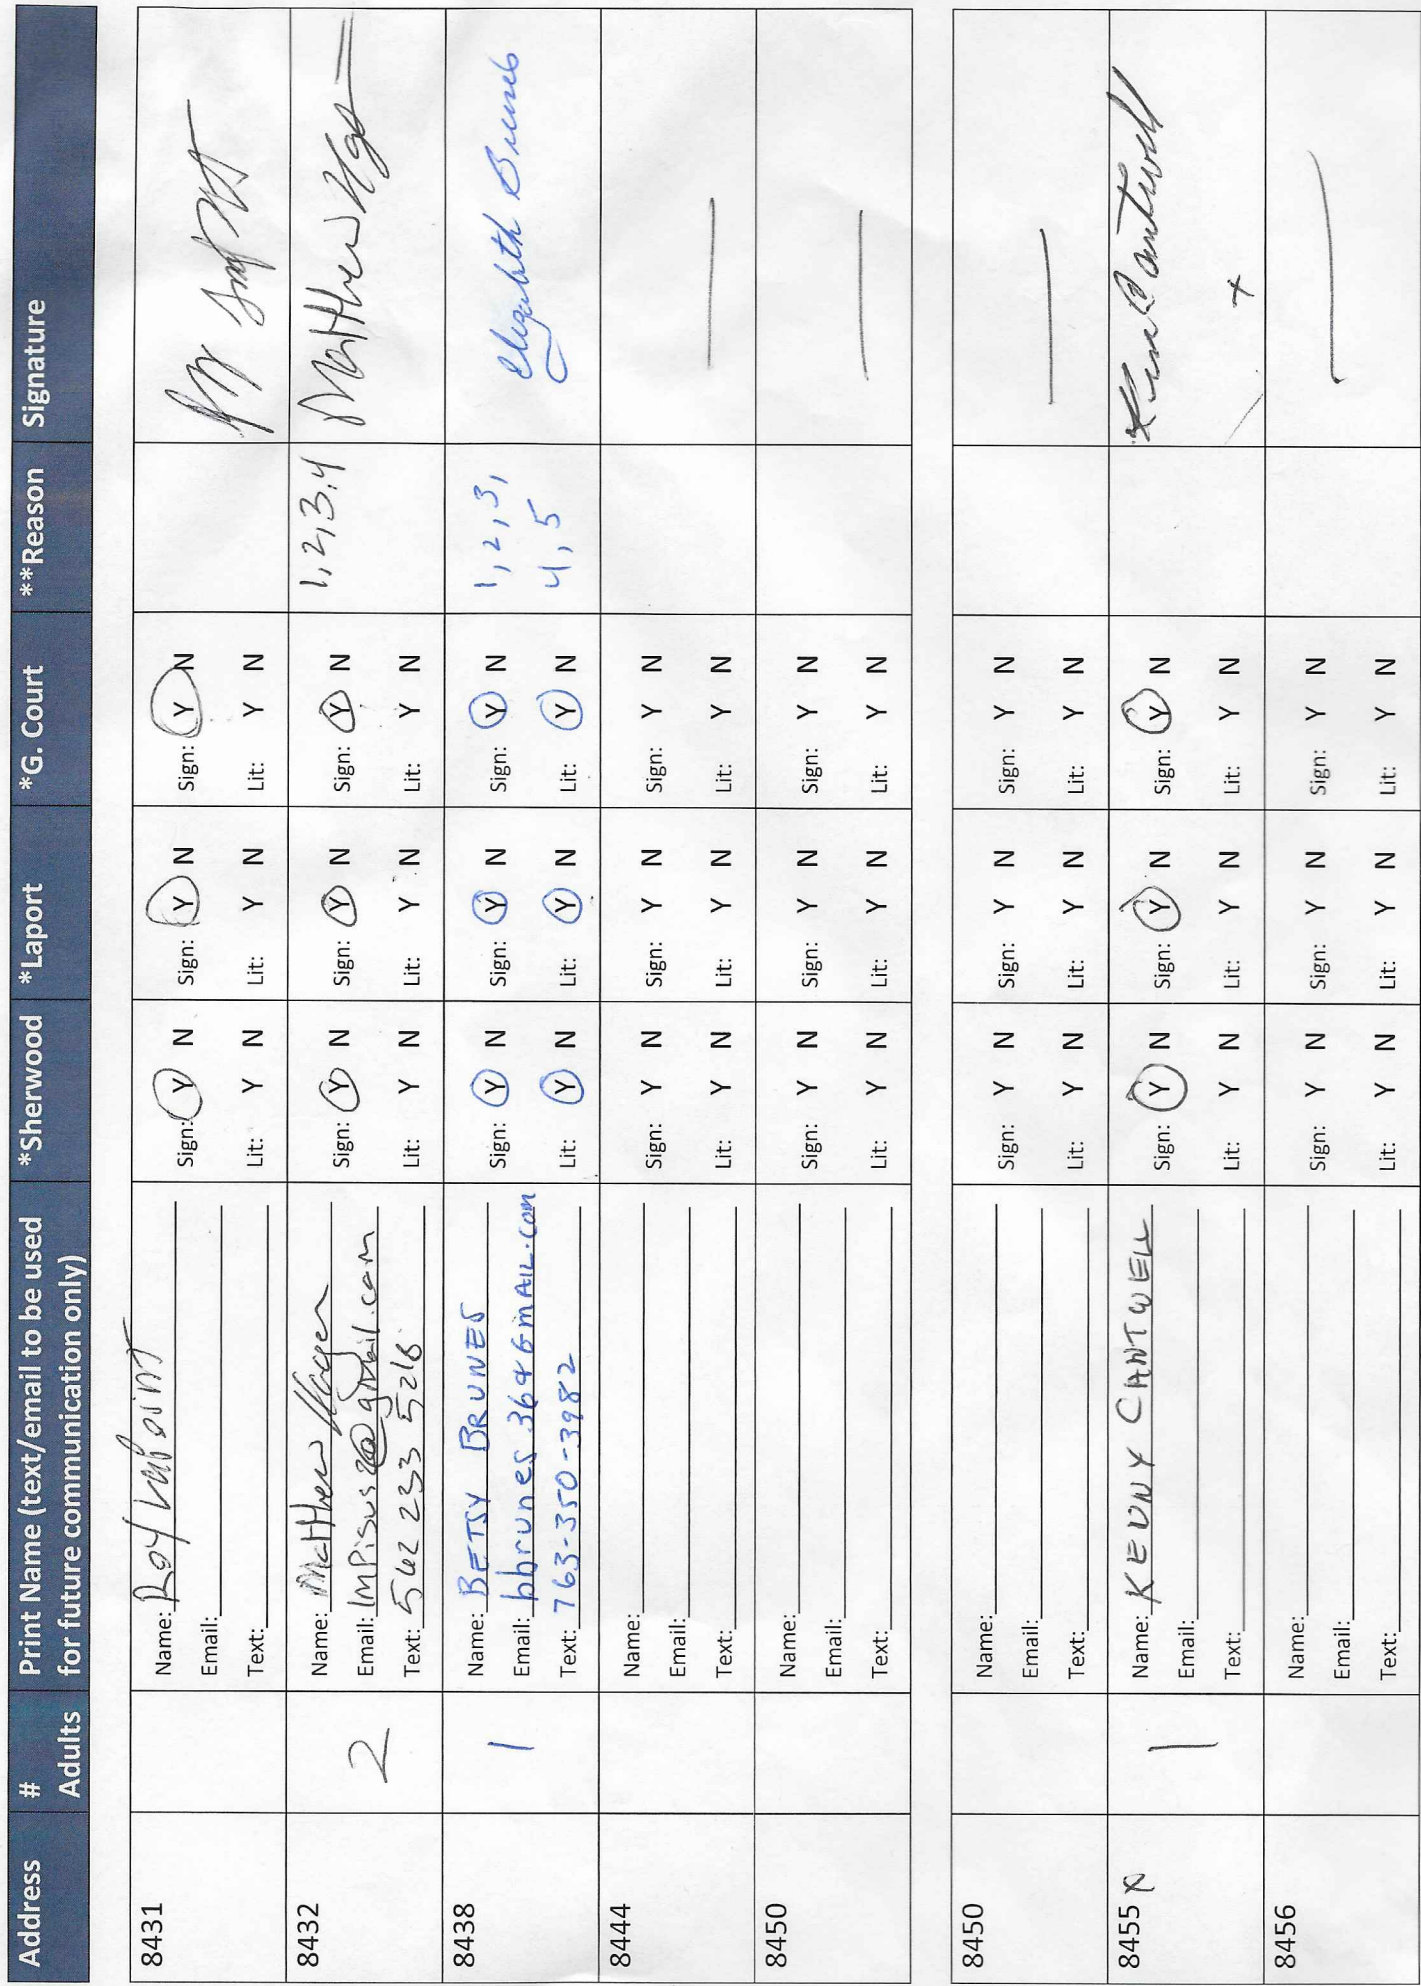 Address # Adults Print Name (text/email to be used for future communication only) *Sherwood *Laport *G. Court **Reason Signature
8431
Name: Roy
Email:
Text:
Sign: Y N Sign: Y N Sign: Y N
Lit: Y N Lit: Y N Lit: Y N
8432 2
Name: Matthew Hager
Email: @gmail.com
Text: 562 233 5218
Sign: Y N Sign: Y N Sign: Y N
Lit: Y N Lit: Y N Lit: Y N
1,2,3,4
Matthew
8438 1
Name: BETSY BRUNES
Email: bbrunes364@GMAIL.COM
Text: 763-350-3982
Sign: Y N Sign: Y N Sign: Y N
Lit: Y N Lit: Y N Lit: Y N
1, 2, 3,
4, 5
Elizabeth Brunes
8444
Name:
Email:
Text:
Sign: Y N Sign: Y N Sign: Y N
Lit: Y N Lit: Y N Lit: Y N
8450
Name:
Email:
Text:
Sign: Y N Sign: Y N Sign: Y N
Lit: Y N Lit: Y N Lit: Y N
8450
Name:
Email:
Text:
Sign: Y N Sign: Y N Sign: Y N
Lit: Y N Lit: Y N Lit: Y N
8455 x 1
Name: KENNY CANTWELL
Email:
Text:
Sign: Y N Sign: Y N Sign: Y N
Lit: Y N Lit: Y N Lit: Y N
Cantwell
x
8456
Name:
Email:
Text:
Sign: Y N Sign: Y N Sign: Y N
Lit: Y N Lit: Y N Lit: Y N